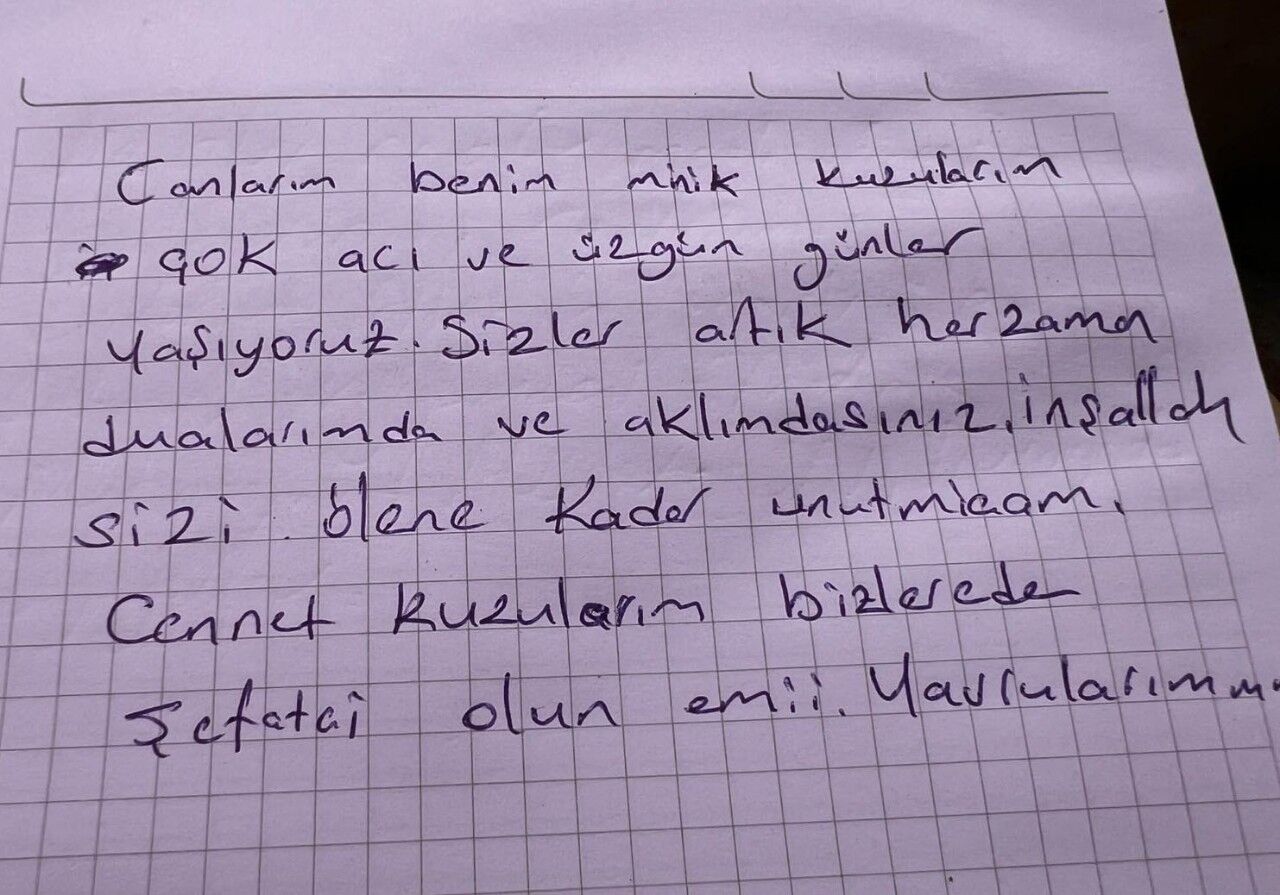 Canlarım benim minik kuzularım
çok acı ve üzgün günler
yaşıyoruz. Sizler artık herzaman
dualarımda ve aklımdasınız, inşallah
sizi ölene kadar unutmicam.
Cennet kuzularım bizlerede
şefatci olun emii. Yavrularımm.